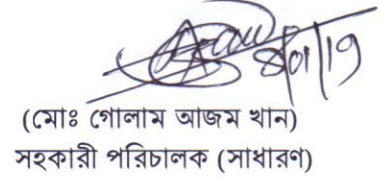 ৪/০১/১৭
(মোঃ গোলাম আজম খান)
সহকারী পরিচালক (সাধারণ)